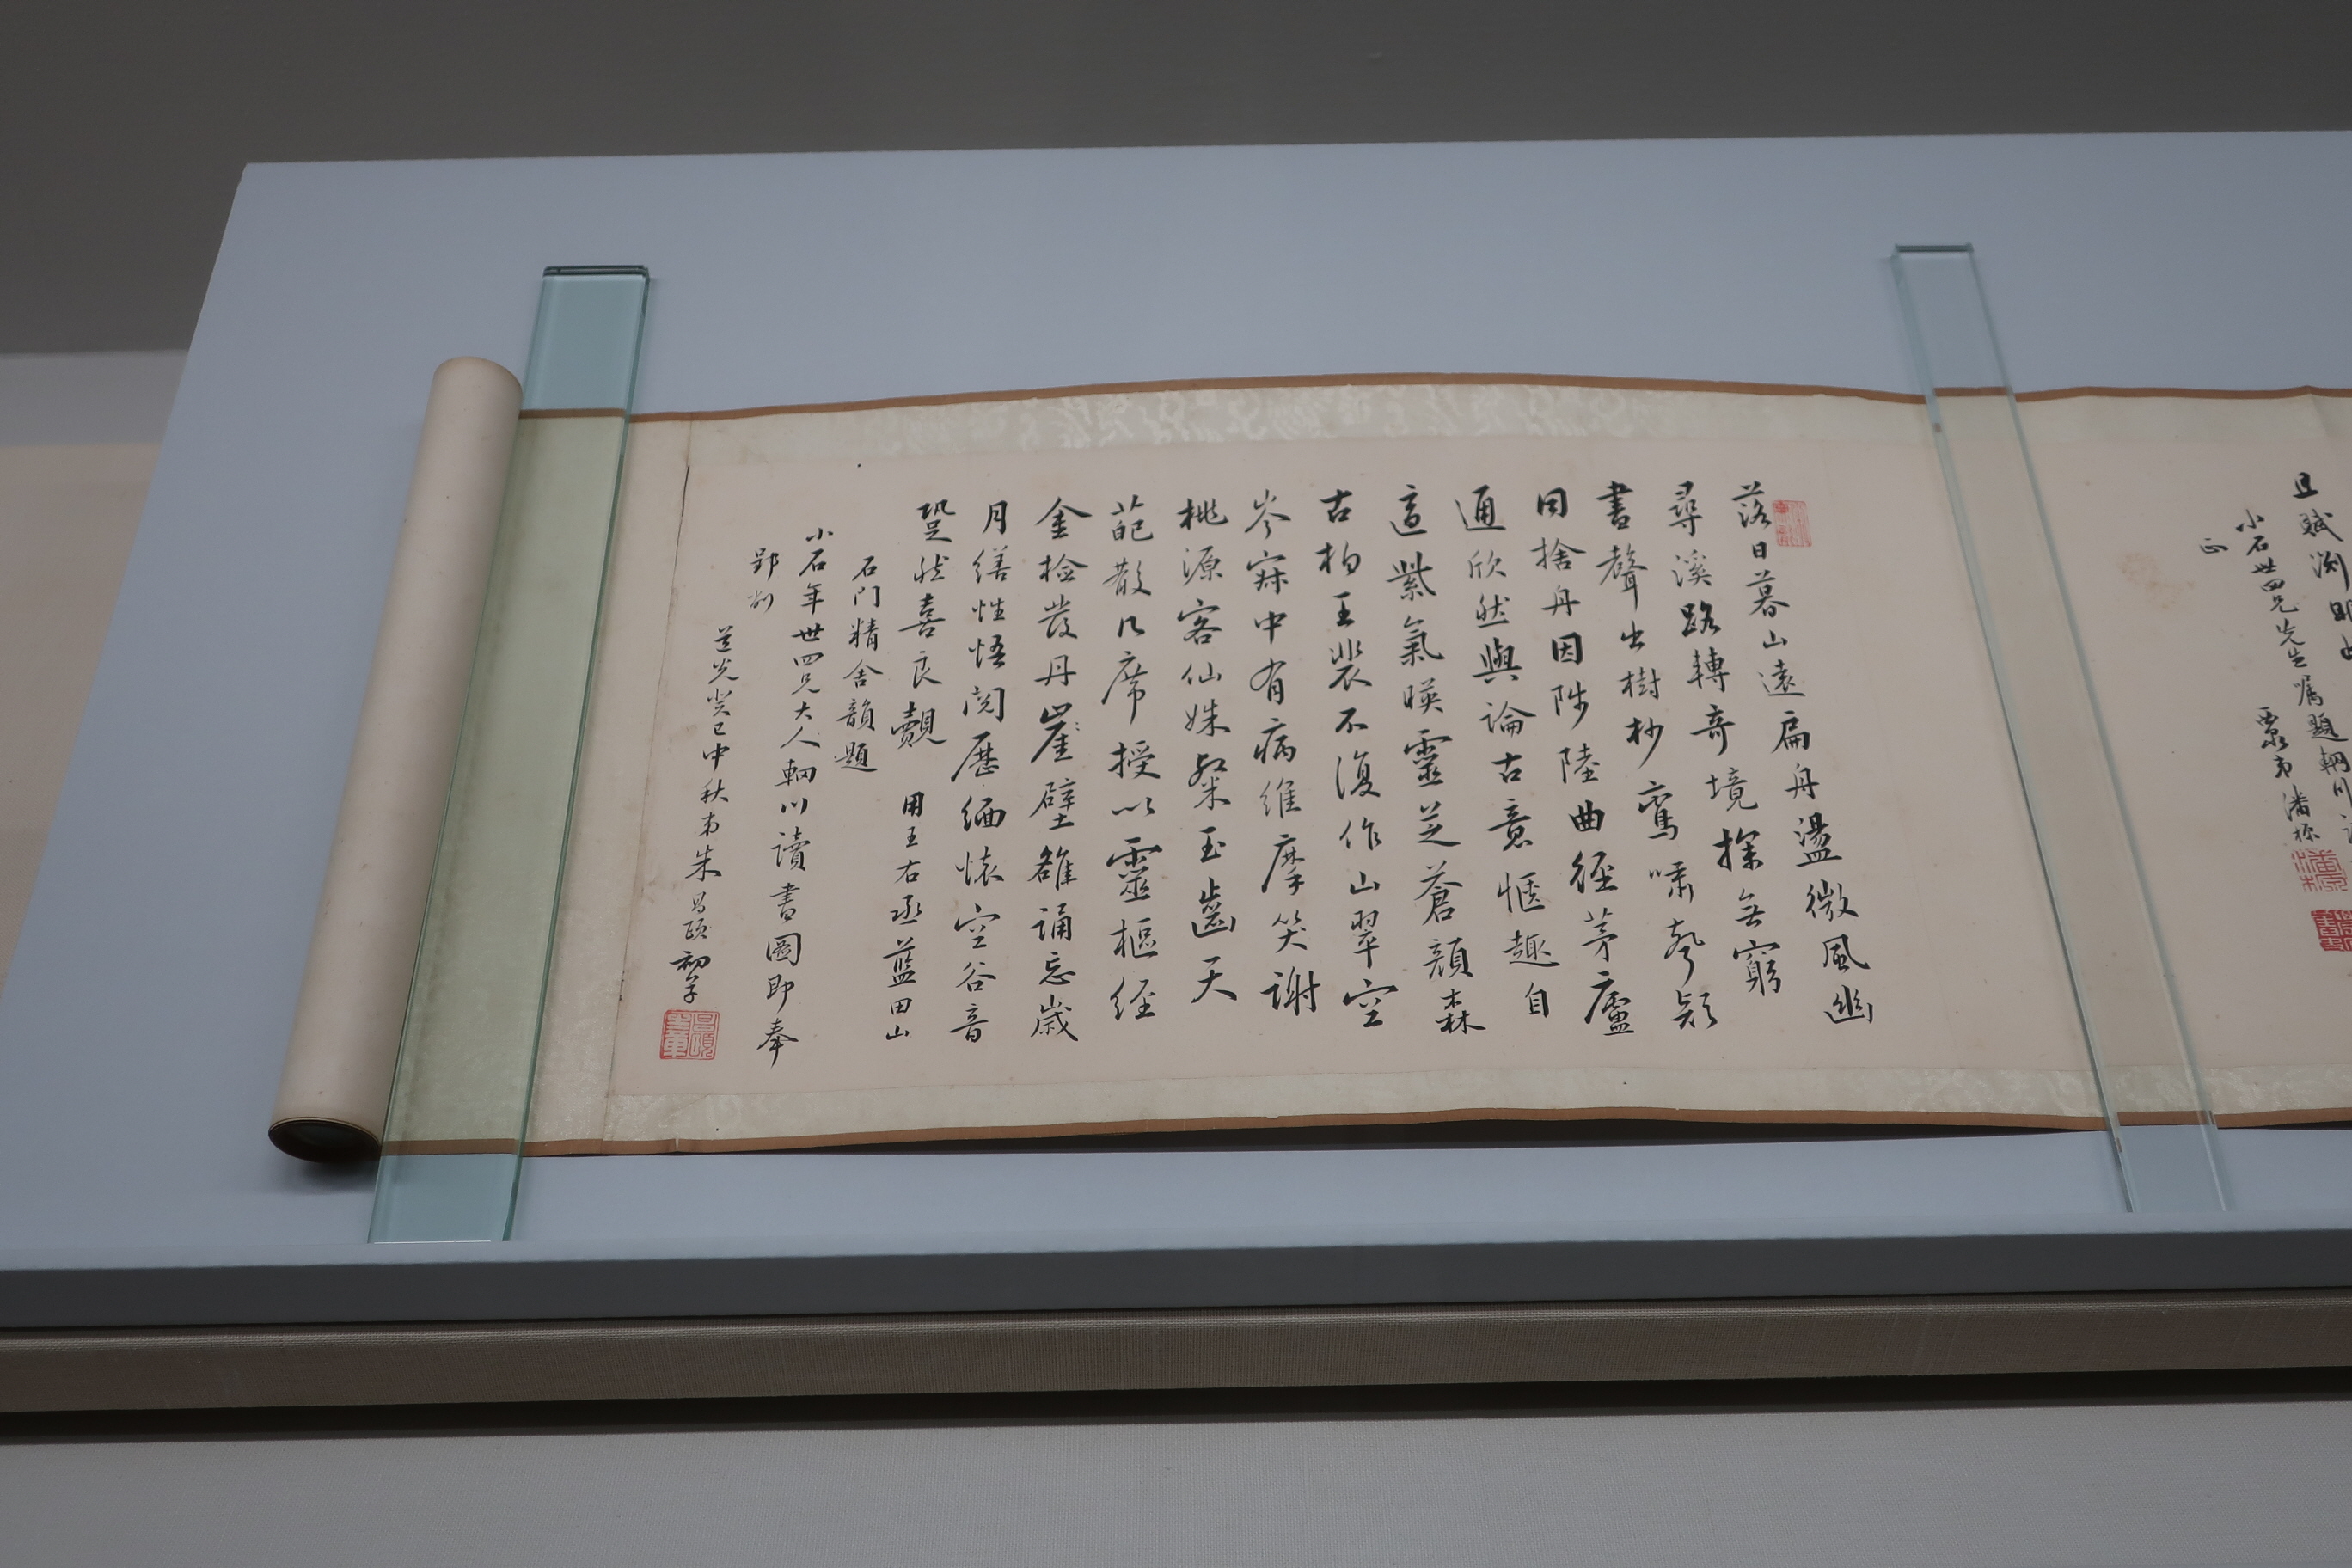 且賦淵明
小石世四兄先生屬題輞川讀
正
弟潘
落日暮山遠扁舟盪微風幽
尋溪路轉奇境探無窮
書聲出樹杪鸞嘯聲疑
同捨舟因陟陸曲徑茅廬
通欣然與論古意愜趣自
適紫氣暎靈芝蒼顏森
古柏王裴不復作山翠空
岑寂中有病維摩笑謝
桃源客仙姝粲玉齒天
葩散几席授以靈樞經
金檢發丹崖壁雒誦忘歲
月繕性悟閱歷緬懷空谷音
跫然喜良覿 用王右丞藍田山
石門精舍韻題
小石年世四兄大人輞川讀書圖即奉
郢削
道光癸巳中秋弟朱昌頤初草